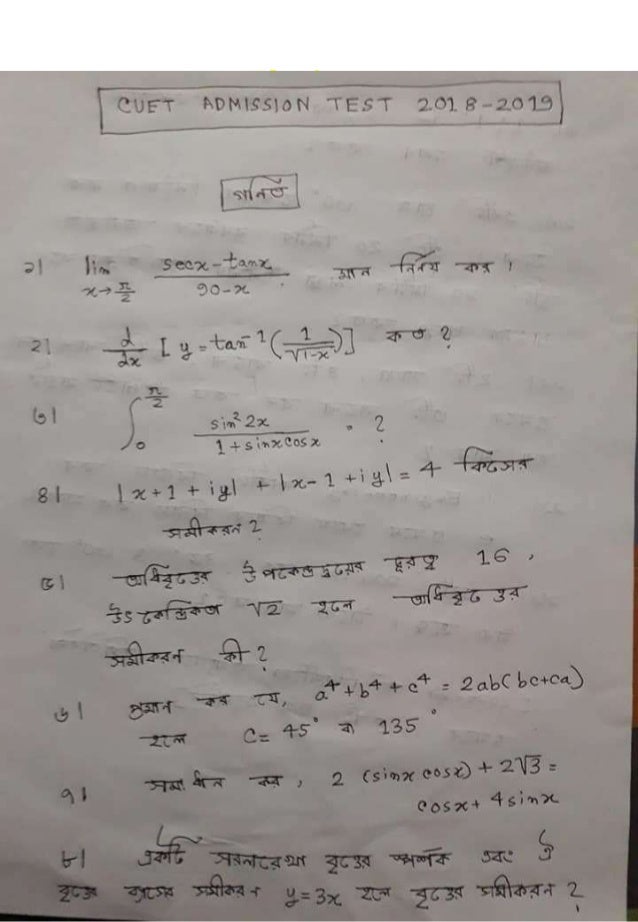 CUET ADMISSION TEST 2018-2019
গনিত
১| lim x→π/2 (secx-tanx)/(90-x) মান নির্নয় কর।
২| d/dx [y=tan⁻¹(1/√1-x)] কত?
৩| ∫₀^(π/2) (sin²2x)/(1+sinxcosx) = ?
৪| |x+1+iy| + |x-1+iy| = 4 কিসের
সমীকরন?
৫| অধিবৃত্তের উপকেন্দ্রদ্বয়ের দূরত্ব 16,
উৎকেন্দ্রিকতা √2 হলে অধিবৃত্তের
সমীকরন কী?
৬| প্রমান কর যে, a⁴+b⁴+c⁴ = 2ab(bc+ca)
হলে C= 45° বা 135°
৭| সমাধান কর, 2 (sinx cosx) + 2√3 =
cosx+ 4sinx
৮| একটি সরলরেখা বৃত্তের স্পর্শক এবং ঐ
বৃত্তের ব্যাসের সমীকরন y=3x হলে বৃত্তের সমীকরন?